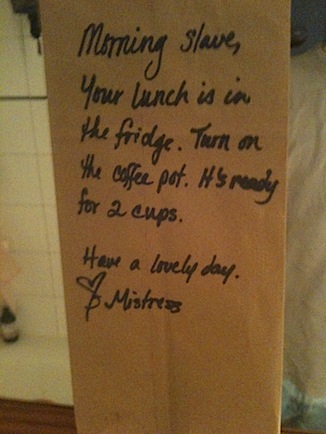 Morning slave,
Your lunch is in
the fridge. Turn on
the coffee pot. It's ready
for 2 cups.
Have a lovely day.
Mistress